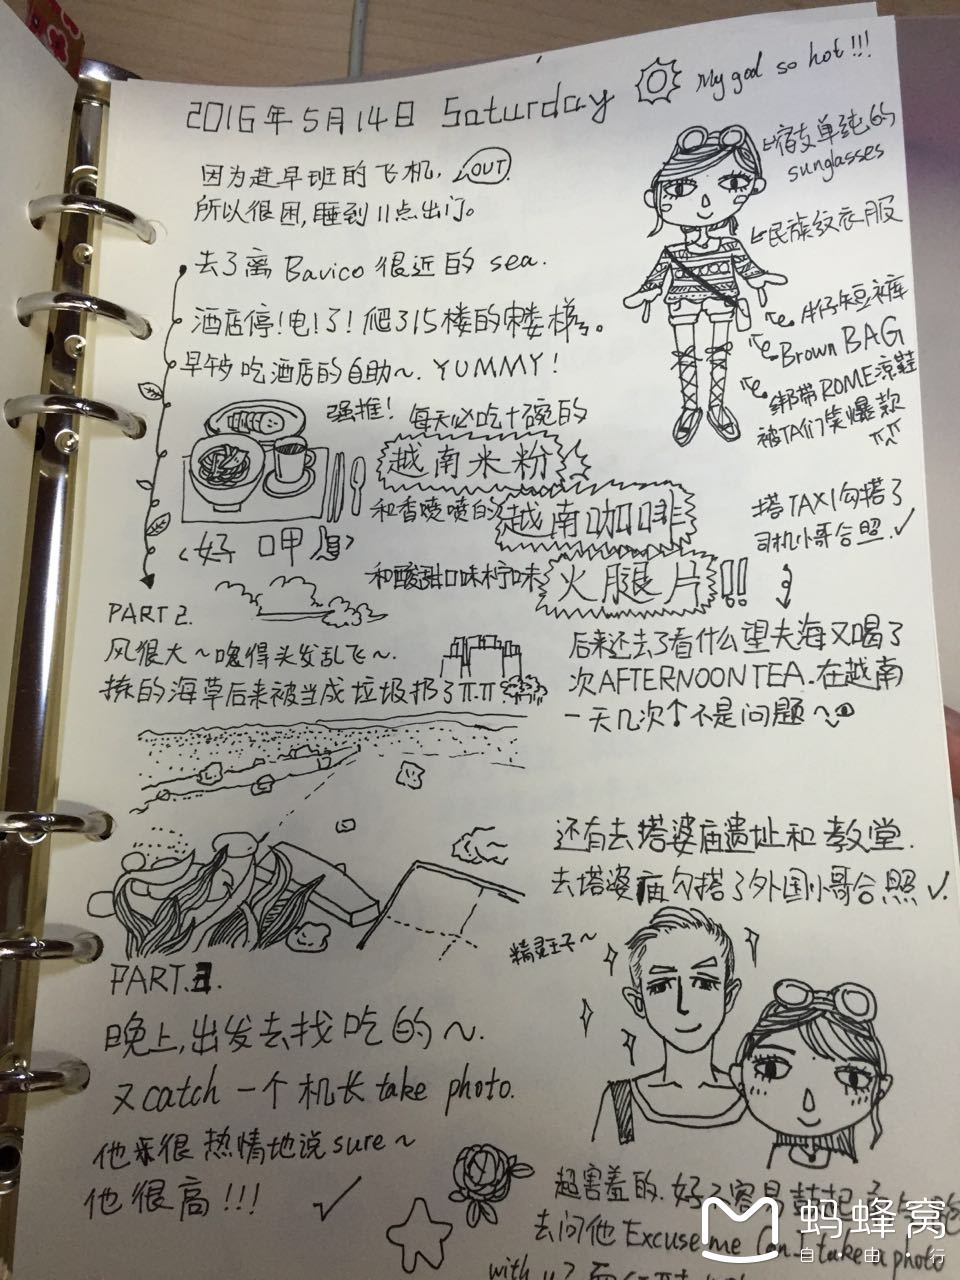 2016年5月14日 Saturday
My god so hot!!!
因为赶早班的飞机,
OUT
所以很困,睡到11点出门。
去了离 Bavico 很近的 sea.
酒店停!电!了!爬315楼的楼梯。
早午吃酒店的自助~. YUMMY!
强推! 每天必吃十碗的
越南米粉
和香喷喷的越南咖啡
和酸甜口味柠味火腿片!!
<好呷息>
单纯的
sunglasses
民族纹衣服
牛仔短裤
Brown BAG
绑带ROME凉鞋
被TA们笑爆款
搭TAXI勾搭了
司机小哥合照.✓
PART 2.
风很大~嗯得头发乱飞~.
捡的海草后来被当成垃圾扔了π.π
后来还去了看什么望夫海又喝了
次AFTERNOON TEA.在越南
一天几次↑不是问题~
还有去塔婆庙遗址和教堂.
去塔婆庙勾搭了外国小哥合照✓.
精灵王子~
PART.3.
晚上,出发去找吃的~.
又catch一个机长take photo.
他很热情地说sure~
他很高!!! ✓
超害羞的.好不容易鼓起
去问他Excuse me Can I take a photo
with u?
蚂蜂窝
自由行